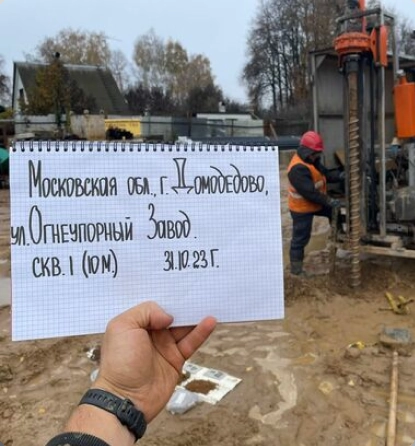 Московская обл., г. Домодедово,
ул. Огнеупорный Завод.
скв. 1 (10м.) 31.10.23г.